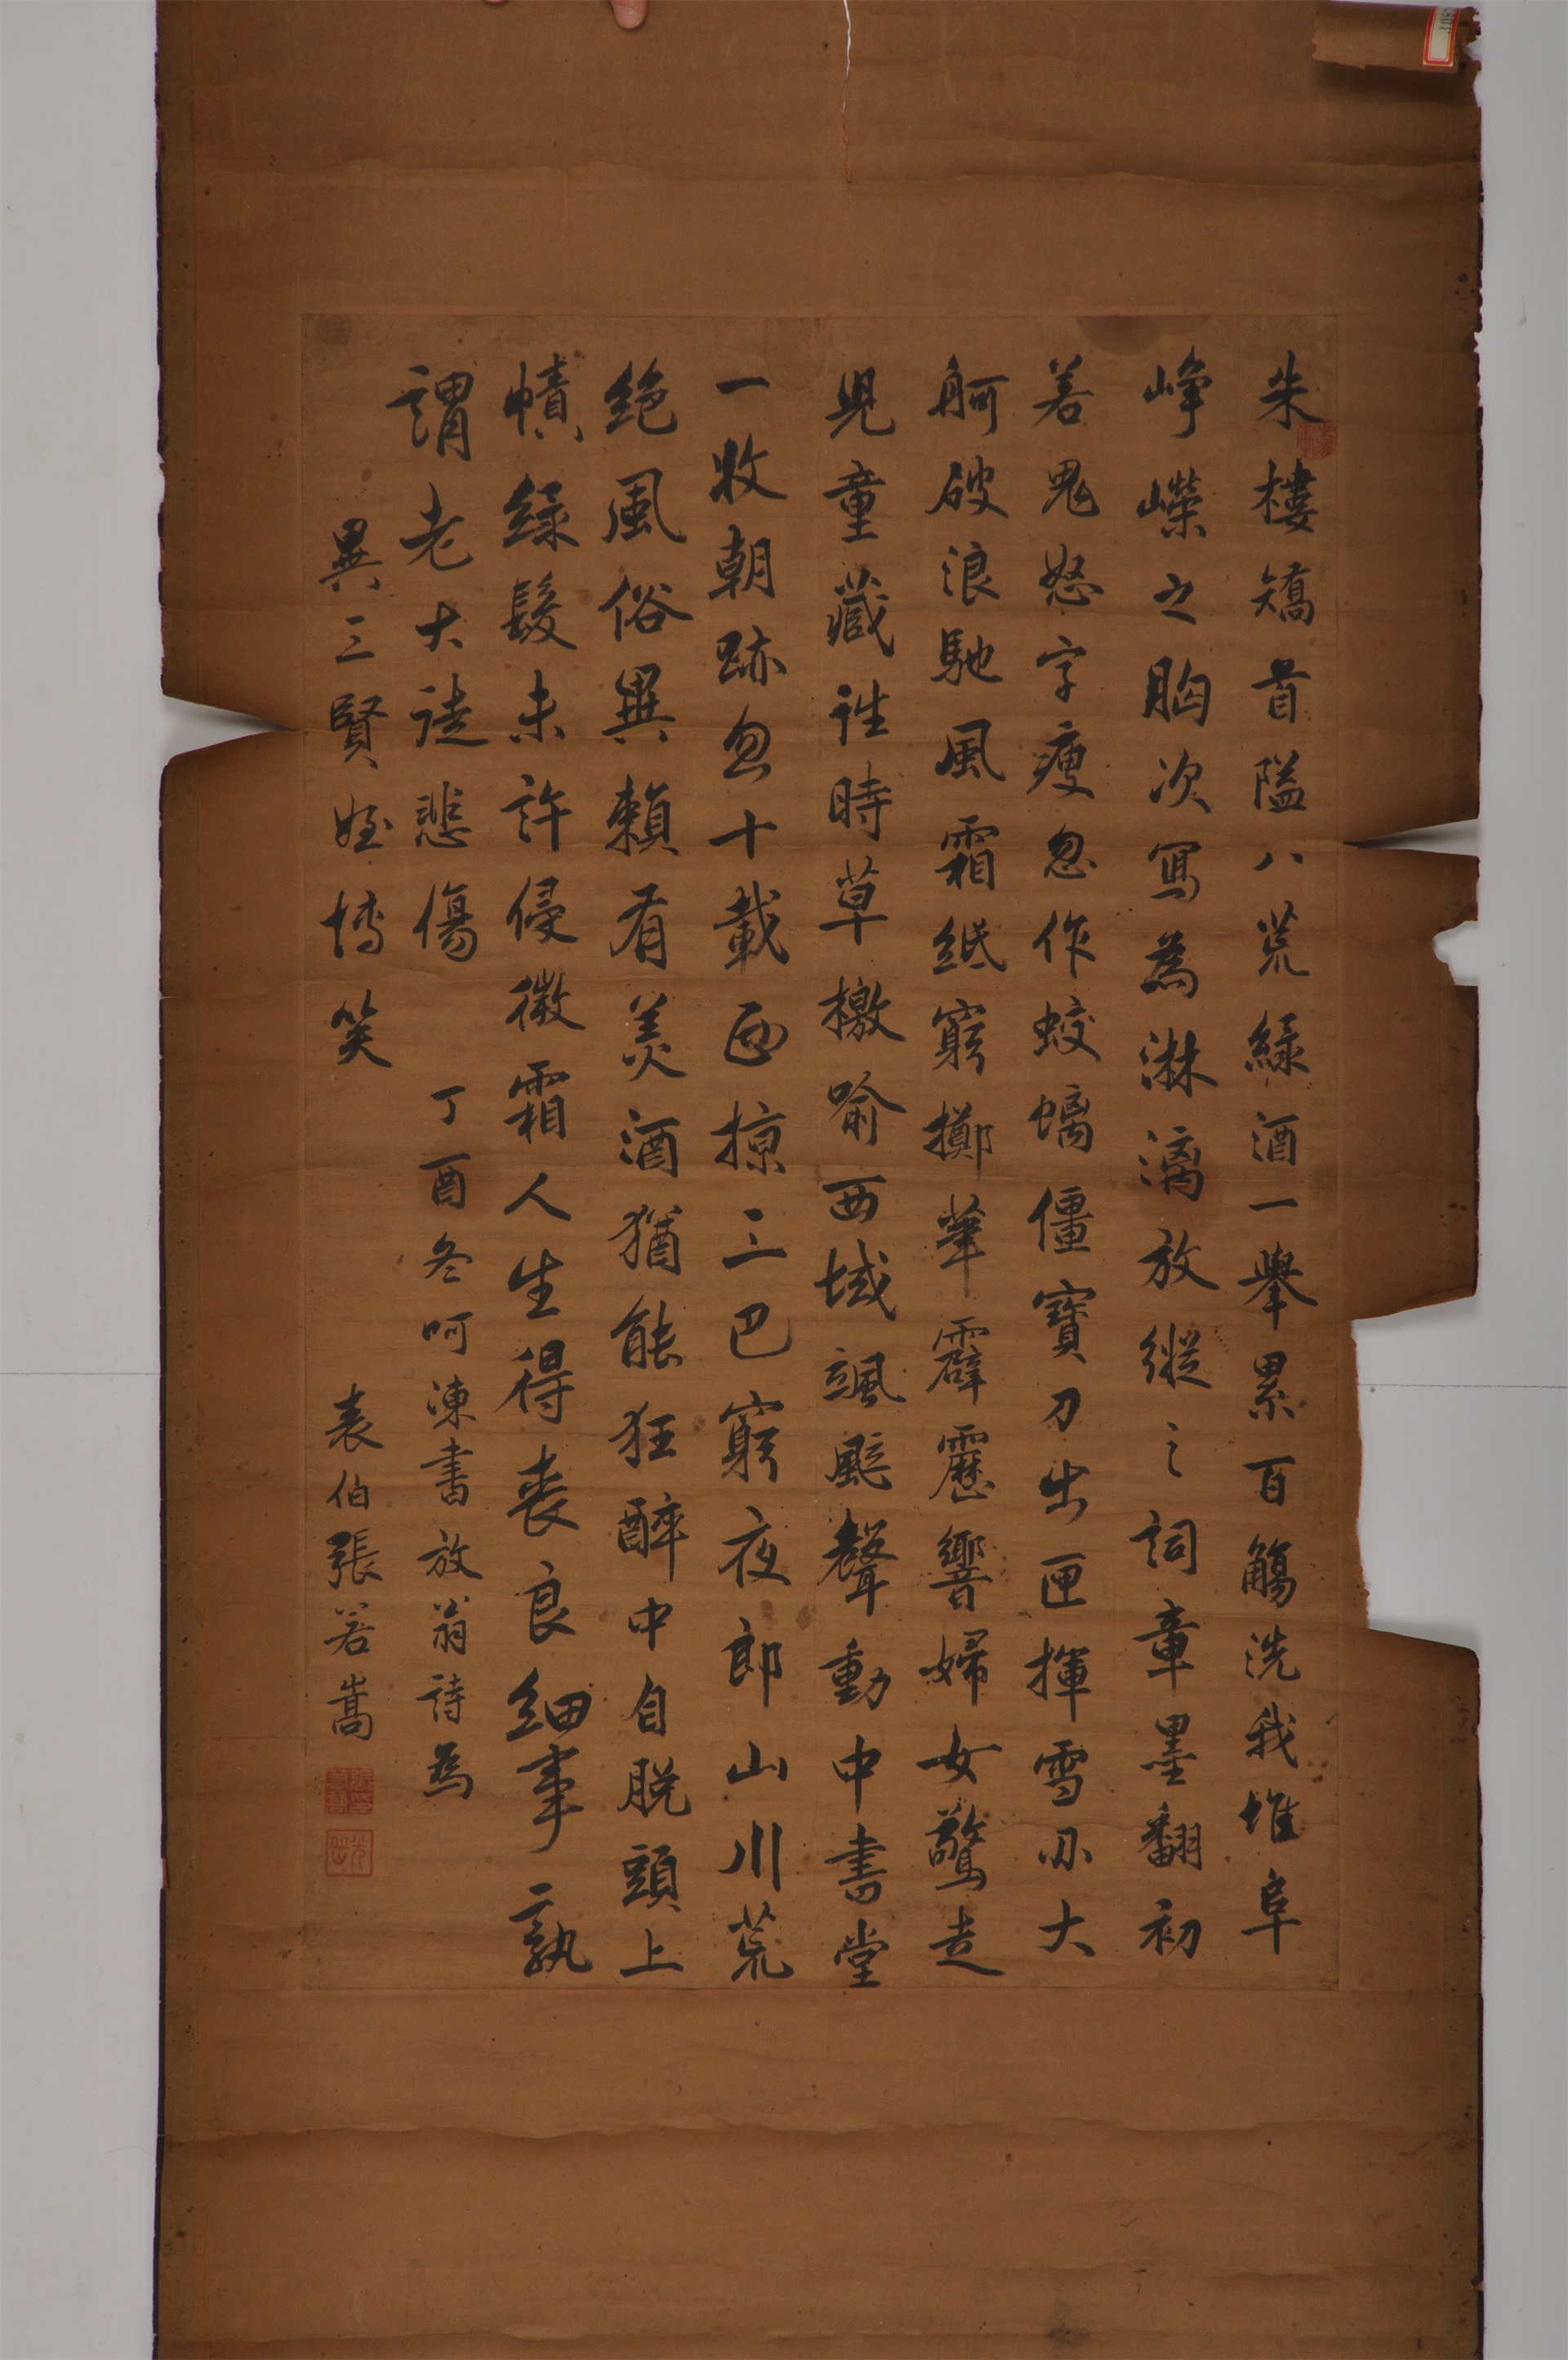 朱樓矯首隘八荒綠酒一舉累百觴洗我堆阜
崢嶸之胸次寫為淋漓放縱之詞章墨翻初
若鬼怒字瘦忽作蛟螭僵寶刀出匣揮雪刃大
舸破浪馳風霜紙窮擲筆霹靂響婦女驚走
兒童藏往時草檄喻西域颯颯聲動中書堂
一收朝跡忽十載西掠三巴窮夜郎山川荒
絕風俗異賴有美酒猶能狂醉中自脫頭上
幘綠髮未許侵微霜人生得喪良細事孰
謂老大徒悲傷 丁酉冬呵凍書放翁詩為
異三賢姪博笑 表伯張若嵩